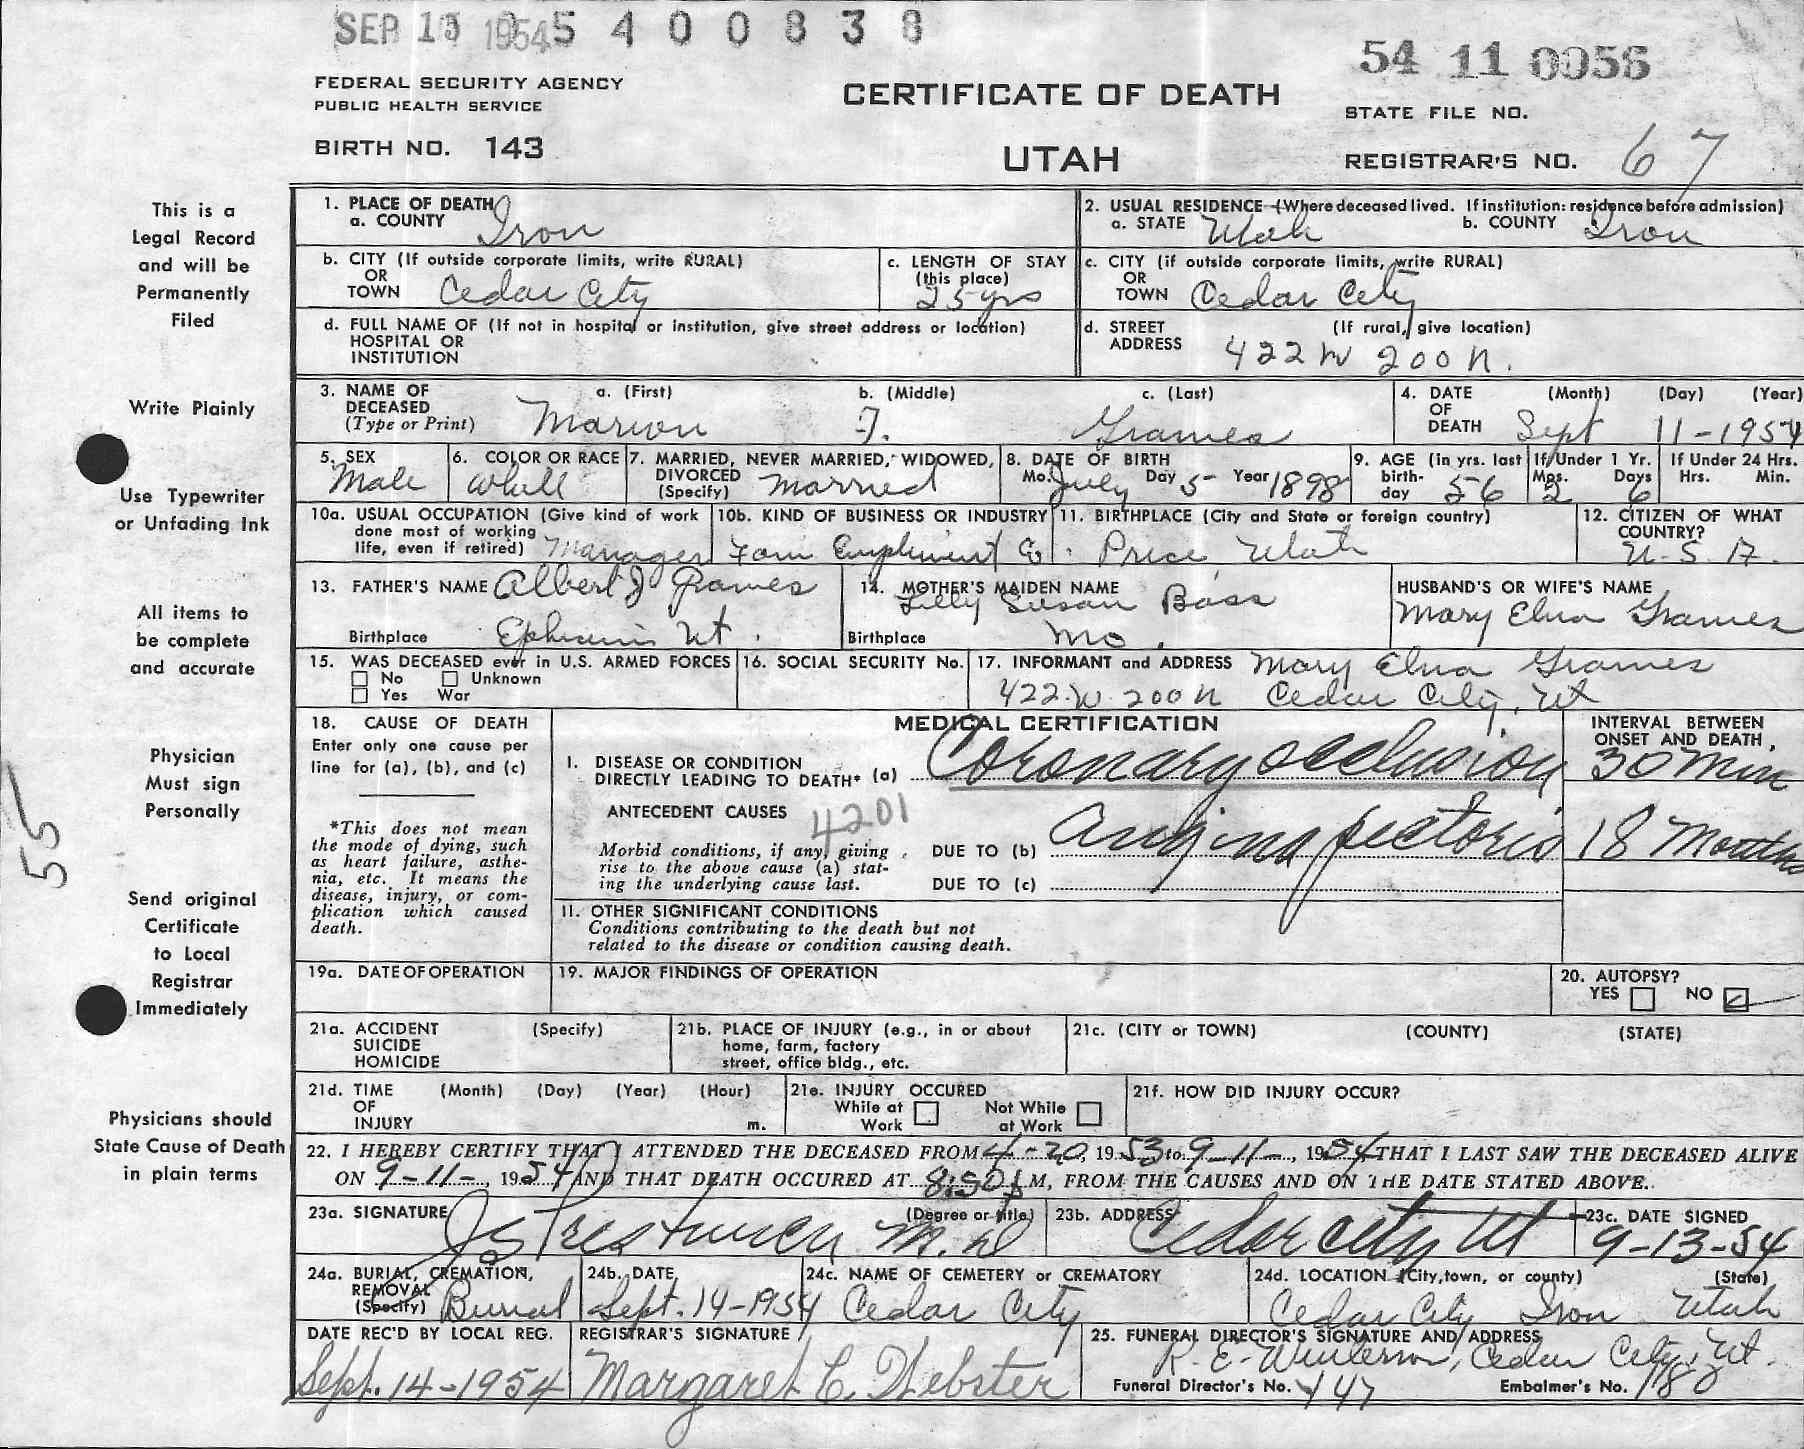 SEP 1954 5 4 0 0 8 3 8
54 11 0056
FEDERAL SECURITY AGENCY
PUBLIC HEALTH SERVICE
BIRTH NO. 143
CERTIFICATE OF DEATH
UTAH
STATE FILE NO.
REGISTRAR'S NO. 67
This is a
Legal Record
and will be
Permanently
Filed
Write Plainly
Use Typewriter
or Unfading Ink
All items to
be complete
and accurate
Physician
Must sign
Personally
55
Send original
Certificate
to Local
Registrar
Immediately
Physicians should
State Cause of Death
in plain terms
1. PLACE OF DEATH
a. COUNTY Iron
2. USUAL RESIDENCE (Where deceased lived. If institution: residence before admission)
a. STATE Utah b. COUNTY Iron
b. CITY (If outside corporate limits, write RURAL)
OR
TOWN Cedar City
c. LENGTH OF STAY
(this place)
25 yrs
c. CITY (if outside corporate limits, write RURAL)
OR
TOWN Cedar City
d. FULL NAME OF (If not in hospital or institution, give street address or location)
HOSPITAL OR
INSTITUTION
d. STREET (If rural, give location)
ADDRESS 422 W 200 N.
3. NAME OF a. (First) b. (Middle) c. (Last)
DECEASED
(Type or Print) Marion J. Grames
4. DATE (Month) (Day) (Year)
OF
DEATH Sept 11-1954
5. SEX
Male
6. COLOR OR RACE
White
7. MARRIED, NEVER MARRIED, WIDOWED,
DIVORCED
(Specify) Married
8. DATE OF BIRTH
Mo. July Day 5 Year 1898
9. AGE (in yrs. last
birth-
day 56
If Under 1 Yr.
Mos. Days
2 6
If Under 24 Hrs.
Hrs. Min.
10a. USUAL OCCUPATION (Give kind of work
done most of working
life, even if retired) Manager
10b. KIND OF BUSINESS OR INDUSTRY
Co.
11. BIRTHPLACE (City and State or foreign country)
Price, Utah
12. CITIZEN OF WHAT
COUNTRY?
U.S.A.
13. FATHER'S NAME Albert J Grames
Birthplace Ephraim Ut.
14. MOTHER'S MAIDEN NAME
Lilly Susan Bass
Birthplace Mo.
HUSBAND'S OR WIFE'S NAME
Mary Elva Grames
15. WAS DECEASED ever in U.S. ARMED FORCES
No Unknown
Yes War
16. SOCIAL SECURITY No.
17. INFORMANT and ADDRESS Mary Elva Grames
422 W 200 N Cedar City, Ut
18. CAUSE OF DEATH
Enter only one cause per
line for (a), (b), and (c)
*This does not mean
the mode of dying, such
as heart failure, asthe-
nia, etc. It means the
disease, injury, or com-
plication which caused
death.
MEDICAL CERTIFICATION
I. DISEASE OR CONDITION
DIRECTLY LEADING TO DEATH* (a) Coronary occlusion
ANTECEDENT CAUSES
4201
Morbid conditions, if any, giving
rise to the above cause (a) stat-
ing the underlying cause last.
DUE TO (b) Angina pectoris
DUE TO (c)
INTERVAL BETWEEN
ONSET AND DEATH
30 Min
18 Months
II. OTHER SIGNIFICANT CONDITIONS
Conditions contributing to the death but not
related to the disease or condition causing death.
19a. DATE OF OPERATION
19. MAJOR FINDINGS OF OPERATION
20. AUTOPSY?
YES NO
21a. ACCIDENT (Specify)
SUICIDE
HOMICIDE
21b. PLACE OF INJURY (e.g., in or about
home, farm, factory
street, office bldg., etc.
21c. (CITY or TOWN) (COUNTY) (STATE)
21d. TIME (Month) (Day) (Year) (Hour)
OF
INJURY m.
21e. INJURY OCCURED
While at Work
Not While at Work
21f. HOW DID INJURY OCCUR?
22. I HEREBY CERTIFY THAT I ATTENDED THE DECEASED FROM 4-20, 1953, to 9-11-, 1954 THAT I LAST SAW THE DECEASED ALIVE
ON 9-11-, 1954 AND THAT DEATH OCCURED AT 8:50 M, FROM THE CAUSES AND ON THE DATE STATED ABOVE.
23a. SIGNATURE (Degree or title)
Prestwich M.D
23b. ADDRESS
Cedar City Ut
23c. DATE SIGNED
9-13-54
24a. BURIAL, CREMATION,
REMOVAL
(Specify) Burial
24b. DATE
Sept. 14-1954
24c. NAME OF CEMETERY or CREMATORY
Cedar City
24d. LOCATION (City, town, or county) (State)
Cedar City Iron Utah
DATE REC'D BY LOCAL REG.
Sept. 14-1954
REGISTRAR'S SIGNATURE
Margaret C. Webster
25. FUNERAL DIRECTOR'S SIGNATURE AND ADDRESS
R. E. Cedar City, Ut.
Funeral Director's No. 447 Embalmer's No. 180